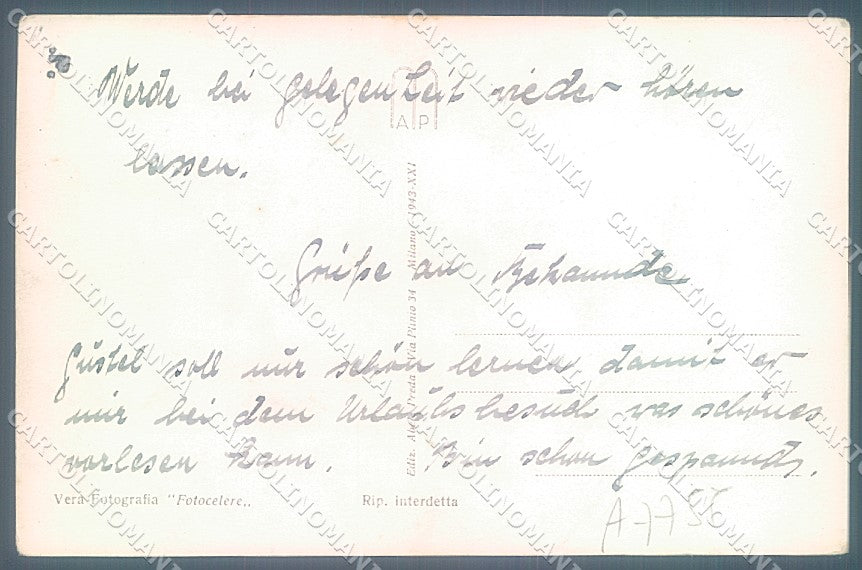 Werde bei Gelegenheit wieder hören
lassen.
Grüße an Bekannde
Gustel soll nur schön lernen damit er
mir bei dem Urlaubsbesuch was schönes
vorlesen kann. Bin schon gespannd.
A P
Ediz. Preda Via Plinio 34 Milano 1943-XXI
Vera Fotografia "Fotocelere„
Rip. interdetta
CARTOLINOMANIA